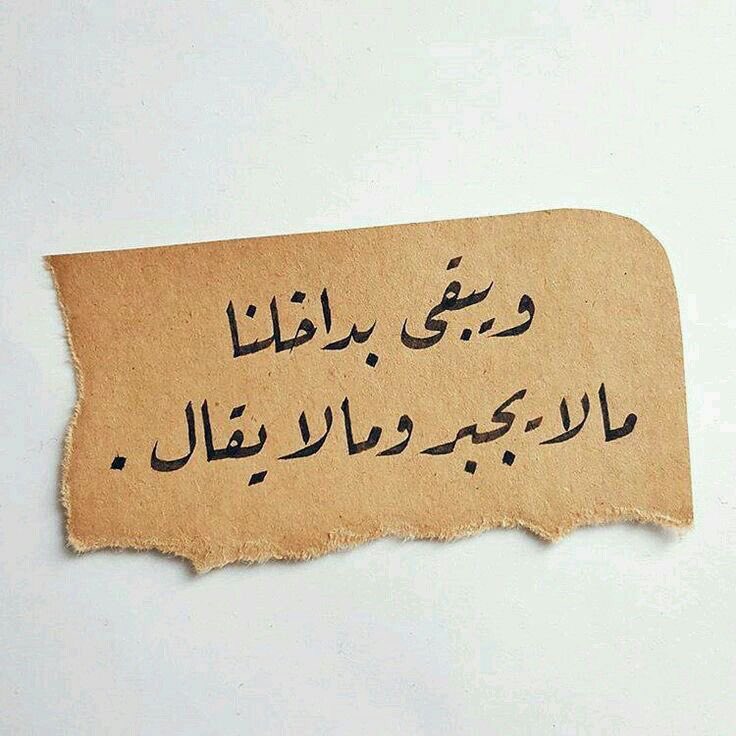 ويبقى بداخلنا
مالا يجبر ومالا يقال .